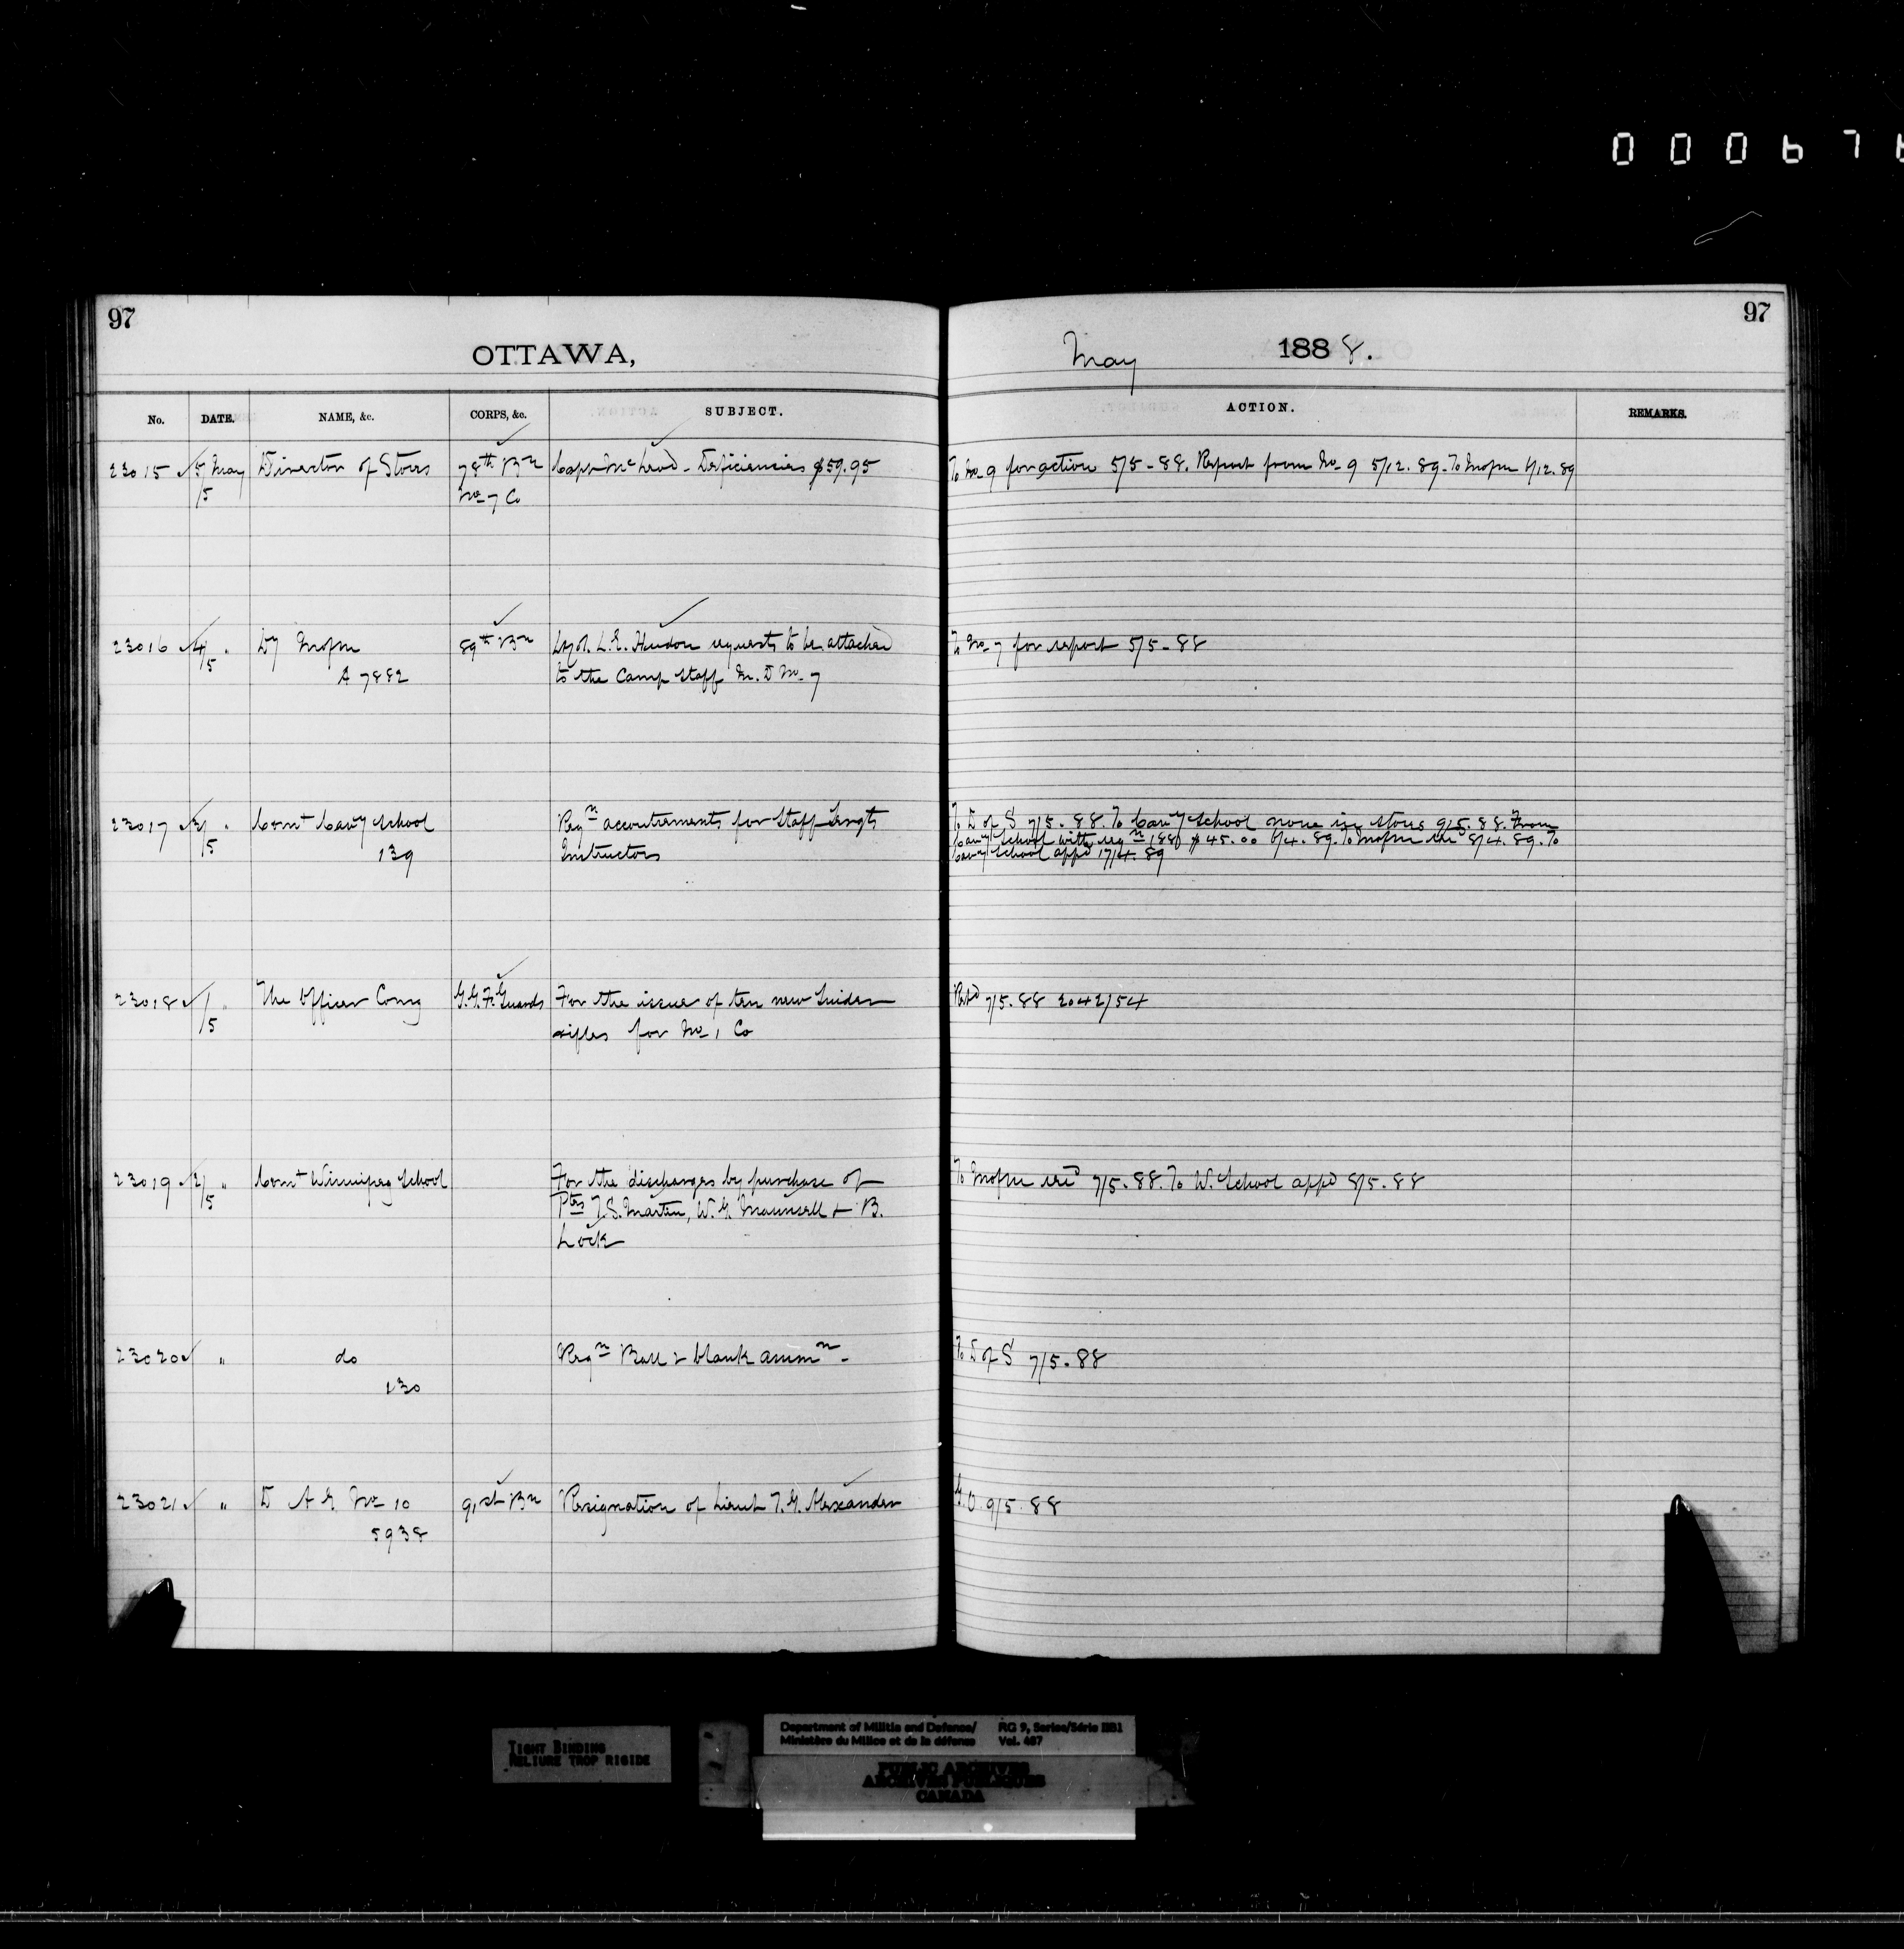 000676
97
OTTAWA,
May 1888.
97
No. DATE. NAME, &c. CORPS, &c. SUBJECT. ACTION. REMARKS.
23015 5/5 May Director of Stores 78th Bn Capt McLeod - Deficiencies $59.95 To No 9 for action 5/5-88. Report from No 9 5/12.89. To
No 7 Co
23016 4/5 " Dy 89th Bn L. E. Hudon requests to be attached To No 7 for report 5/5-88
A 7882 to the Camp Staff M. D No 7
23017 3/5 " Comt Cavy School Reqn accoutrements for Staff Sergts To D of S 7/5.88. To Cavy School none in stores 9/5.88. From
139 Instructors Cavy School with reqn 188 $45.00 6/4.89. To 8/4.89. To
Cavy School appd 17/4.89
23018 1/5 " The Officer Comg G.G.F. Guards For the issue of ten new Snider Retd 7/5.88 2042/54
rifles for No 1 Co
23019 2/5 " Comt Winnipeg School For the discharges by purchase of To 7/5.88. To W. School appd 8/5.88
Ptes T. S. Martin, W. G. Maunsell + B.
Lock
23020 " do Reqn Ball & blank ammn. To D of S 7/5.88
130
23021 " D A G No 10 91st Bn Resignation of Lieut T. G. Alexander G.O. 9/5.88
5938
TIGHT BINDING
RELIURE TROP RIGIDE
Department of Militia and Defence/ RG 9, Series/Série IIB1
Ministère du Milice et de la défense Vol. 487
PUBLIC ARCHIVES
ARCHIVES PUBLIQUES
CANADA